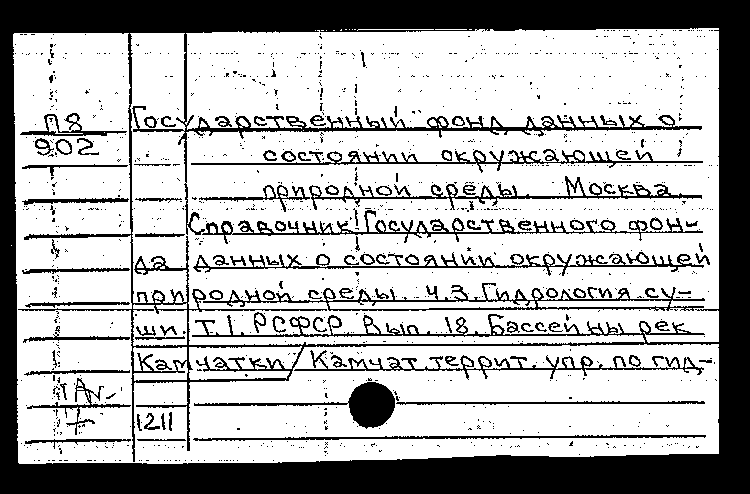 П8 Государственный фонд данных о
902 состоянии окружающей
природной среды. Москва.
Справочник Государственного фон-
да данных о состоянии окружающей
природной среды. Ч.3. Гидрология су-
ши. Т.1. РСФСР. Вып. 18. Бассейны рек
Камчатки/ Камчат. террит. упр. по гид-
1211